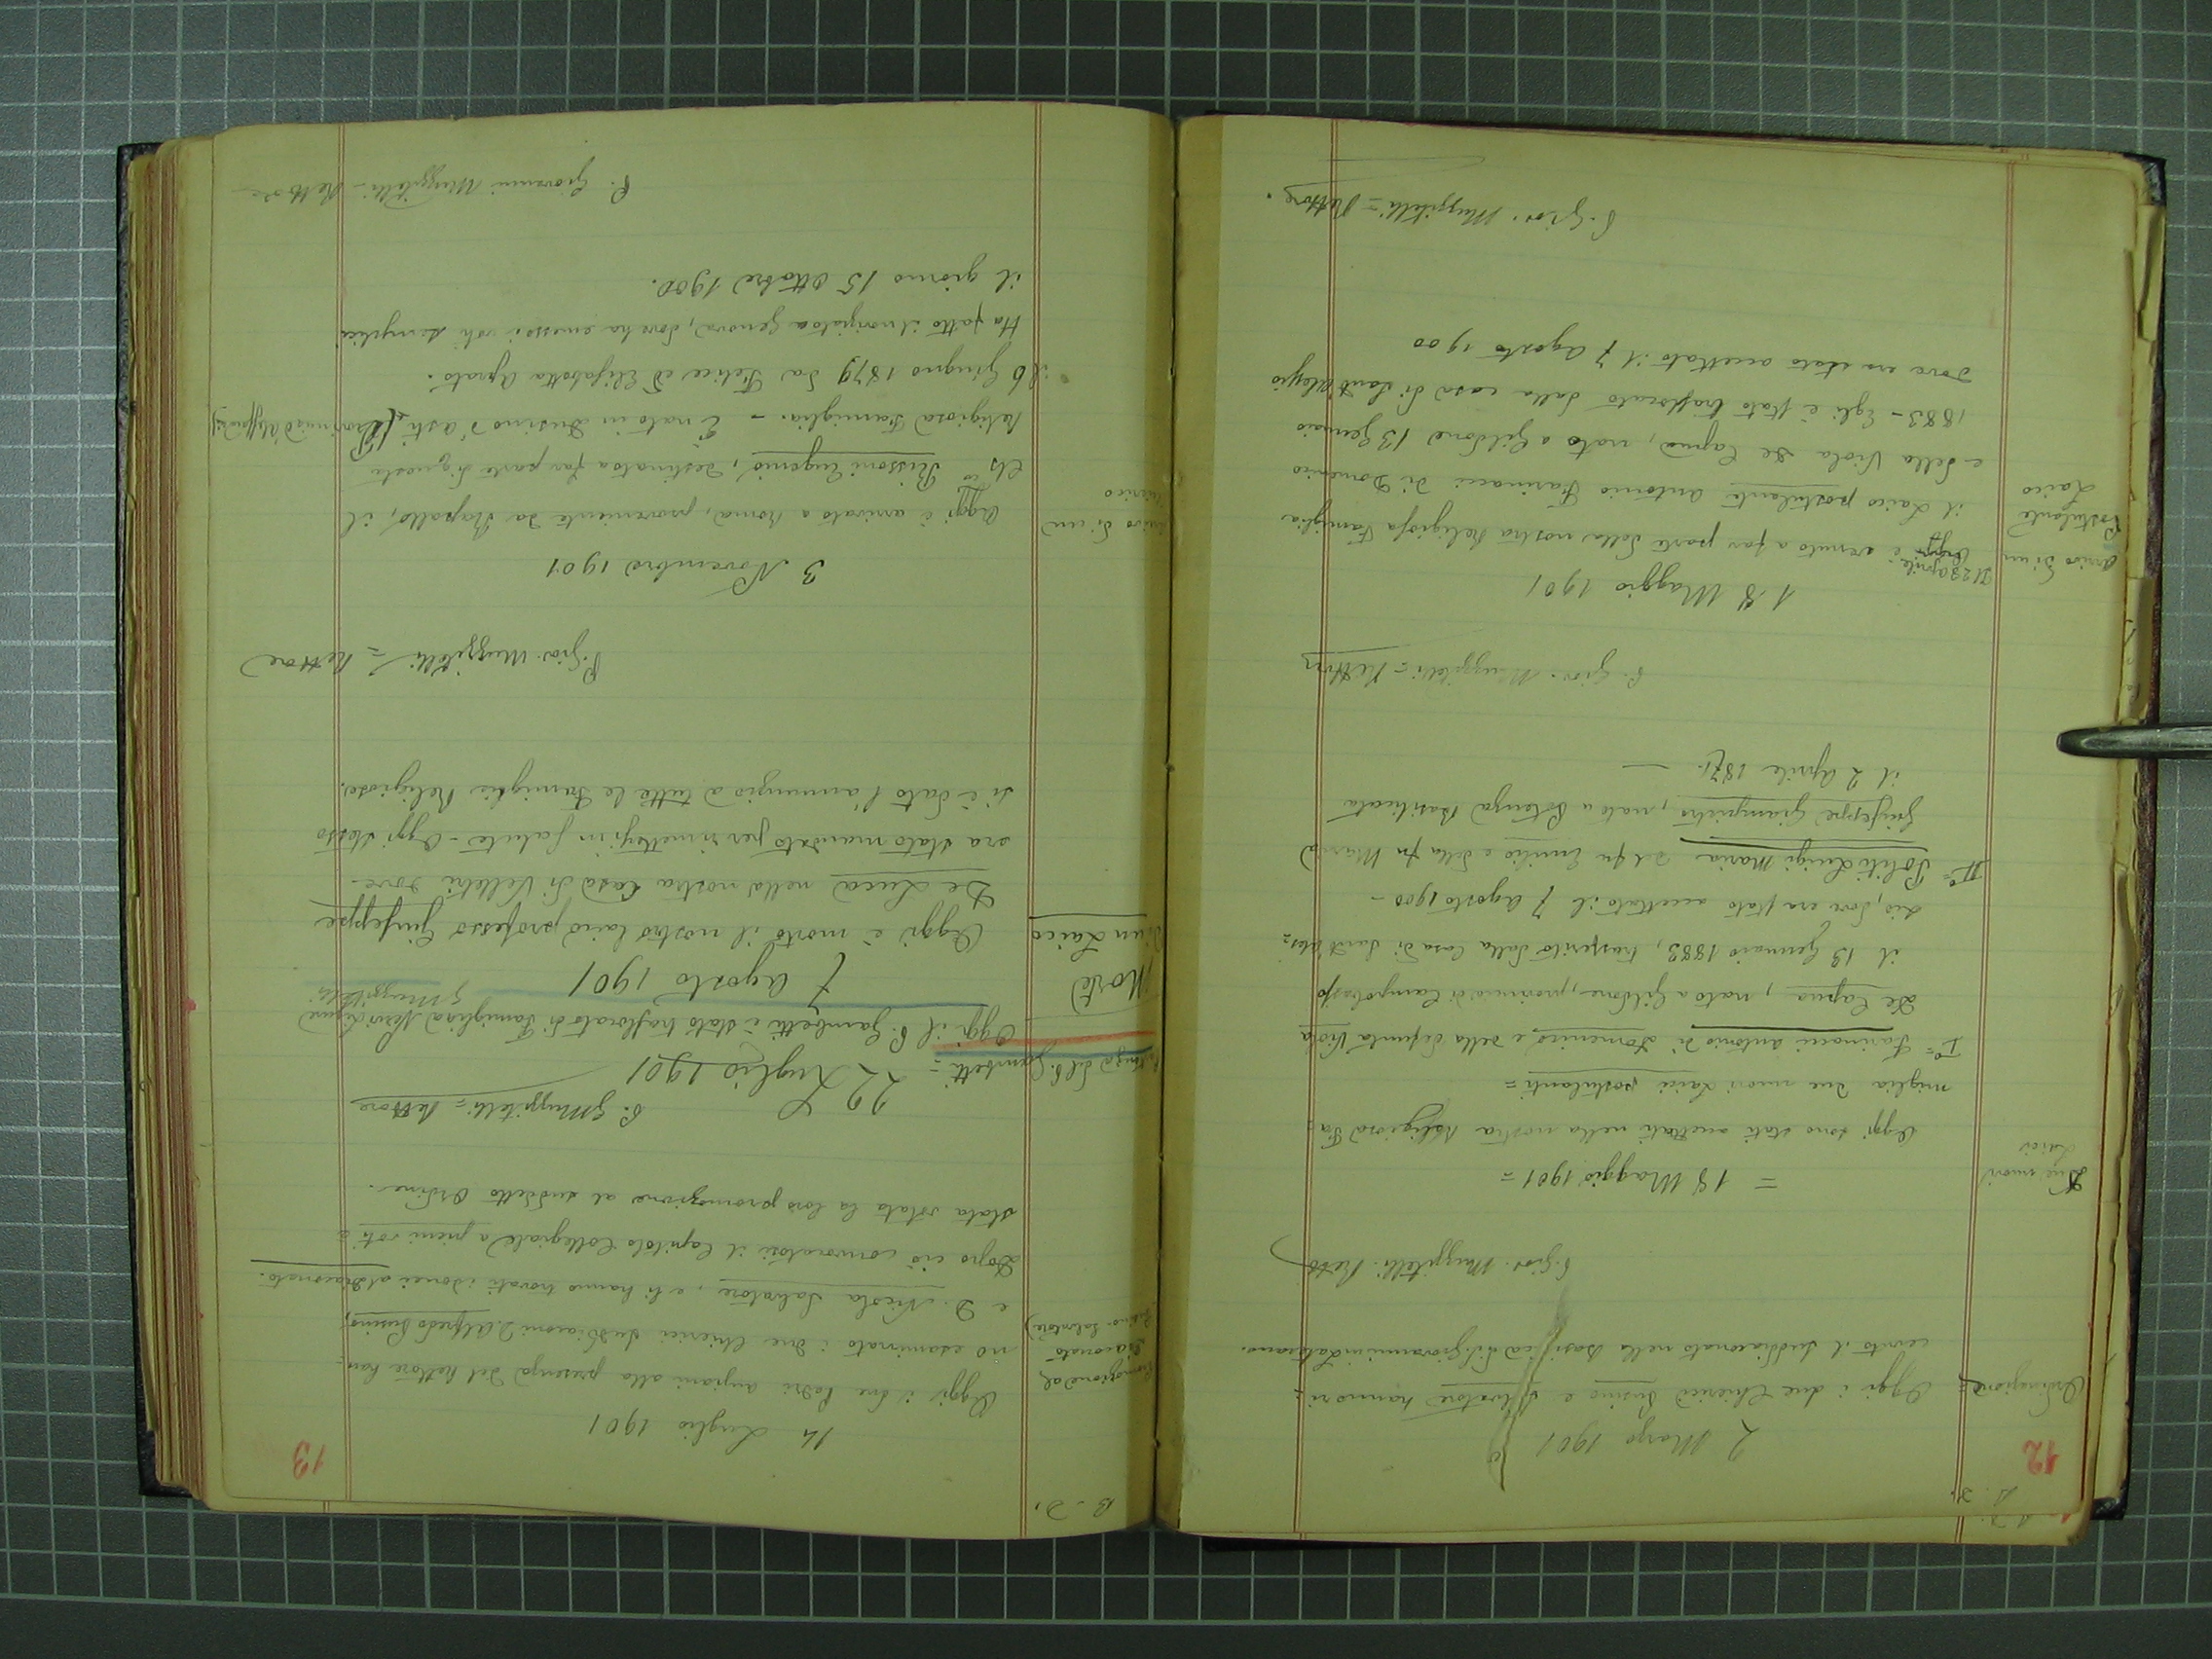 A. D.
12
2 Marzo 1901
Ordinazione = Oggi i due Chierici Pusino e Salvatore hanno ri=
cevuto il Suddiaconato nella Basilica di S. Giovanni in Laterano.
P. Giov. Muzzitelli Rett.
= 18 Maggio 1901 =
Due nuovi
Laici
Oggi sono stati accettati nella nostra religiosa Fa=
miglia due nuovi Laici postulanti =
I° = Farinacci Antonio di Domenico e della defunta Viola
De Capua, nato a Gildone, provincia di Campobasso
il 13 Gennaio 1883, trasferito dalla Casa di Sant'Ales=
sio, dove era stato accettato il 7 Agosto 1900 -
II° = Politi Luigi Maria del fu Emilio e della fu Maria
Giuseppe Giampietro, nato a Potenza Basilicata
il 2 Aprile 1871. —
P. Giov. Muzzitelli = Rettore
18 Maggio 1901
Arrivo di un
Postulante
Laico
Il 22 Aprile
Oggi è venuto a far parte della nostra Religiosa Famiglia
il Laico postulante Antonio Farinacci di Domenico
e della Viola De Capua, nato a Gildone 13 Gennaio
1883 - Egli è stato traslocato dalla casa di Sant'Alessio
dove era stato accettato il 7 Agosto 1900
P. Giov. Muzzitelli = Rettore.
B. D.
13
14 Luglio 1901
Promozione al
Diaconato
Salvatore)
Oggi i due Padri anziani alla presenza del Rettore han=
no esaminato i due Chierici Suddiaconi D. Alfredo Pusino,
e D. Nicola Salvatore, e li hanno trovati idonei al Diaconato.
Dopo ciò convocatosi il Capitolo Collegiale a pieni voti è
stata votata la loro promozione al suddetto Ordine.
P. G Muzzitelli = Rettore
22 Luglio 1901
del P. Gambetti = Oggi il P. Gambetti è stato traslocato di Famiglia a Nervi Ligure
G Muzzitelli
7 Agosto 1901
Morte
di un Laico
Oggi è morto il nostro laico professo Giuseppe
De Luca nella nostra Casa di Velletri dove
era stato mandato per rimettersi in salute - Oggi stesso
si è dato l'annunzio a tutte le Famiglie Religiose.
P. Giov. Muzzitelli = Rettore
3 Novembre 1901
Arrivo di un
Chierico
Oggi è arrivato a Roma, proveniente da Rapallo, il
Ch.co Rissoni Eugenio, destinato a far parte di questa
religiosa Famiglia. - È nato in Dusino d'Asti (Provincia d'Alessandria)
il 6 Giugno 1879 da Felice ed Elisabetta Aprato.
Ha fatto il noviziato a Genova, dove ha emesso i voti semplici
il giorno 15 Ottobre 1900.
P. Giovanni Muzzitelli - Rettore